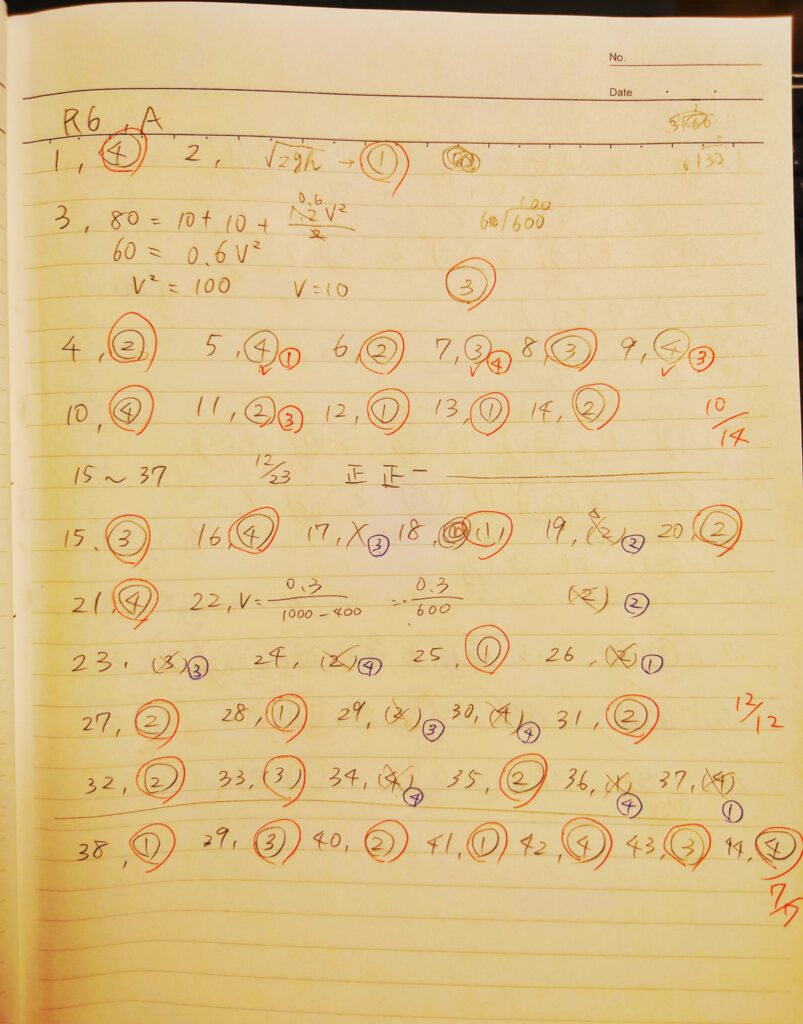 No.
Date
R6, A
1, ④ 2, √2gh → ①
3, 80 = 10 + 10 + 0.6 V²
60 = 0.6 V²
V² = 100 V = 10 ③
60 600 100
4, ② 5, ④ ① 6, ② 7, ③ ④ 8, ③ 9, ④ ③
10, ④ 11, ② ③ 12, ① 13, ① 14, ② 10/14
15 ~ 37 12/23 正 正 一
15, ③ 16, ④ 17, ③ 18, (1) 19, (2) ② 20, ②
21, ④ 22, V = 0.3/1000-400 = 0.3/600 (2) ②
23, (3) ③ 24, (2) ④ 25, ① 26, (2) ①
27, ② 28, ① 29, ③ 30, (4) ④ 31, ② 12/12
32, ② 33, (3) 34, (4) ④ 35, ② 36, ④ 37, (4) ①
38, ① 39, ③ 40, ② 41, ① 42, ④ 43, ③ 44, ④
7/7